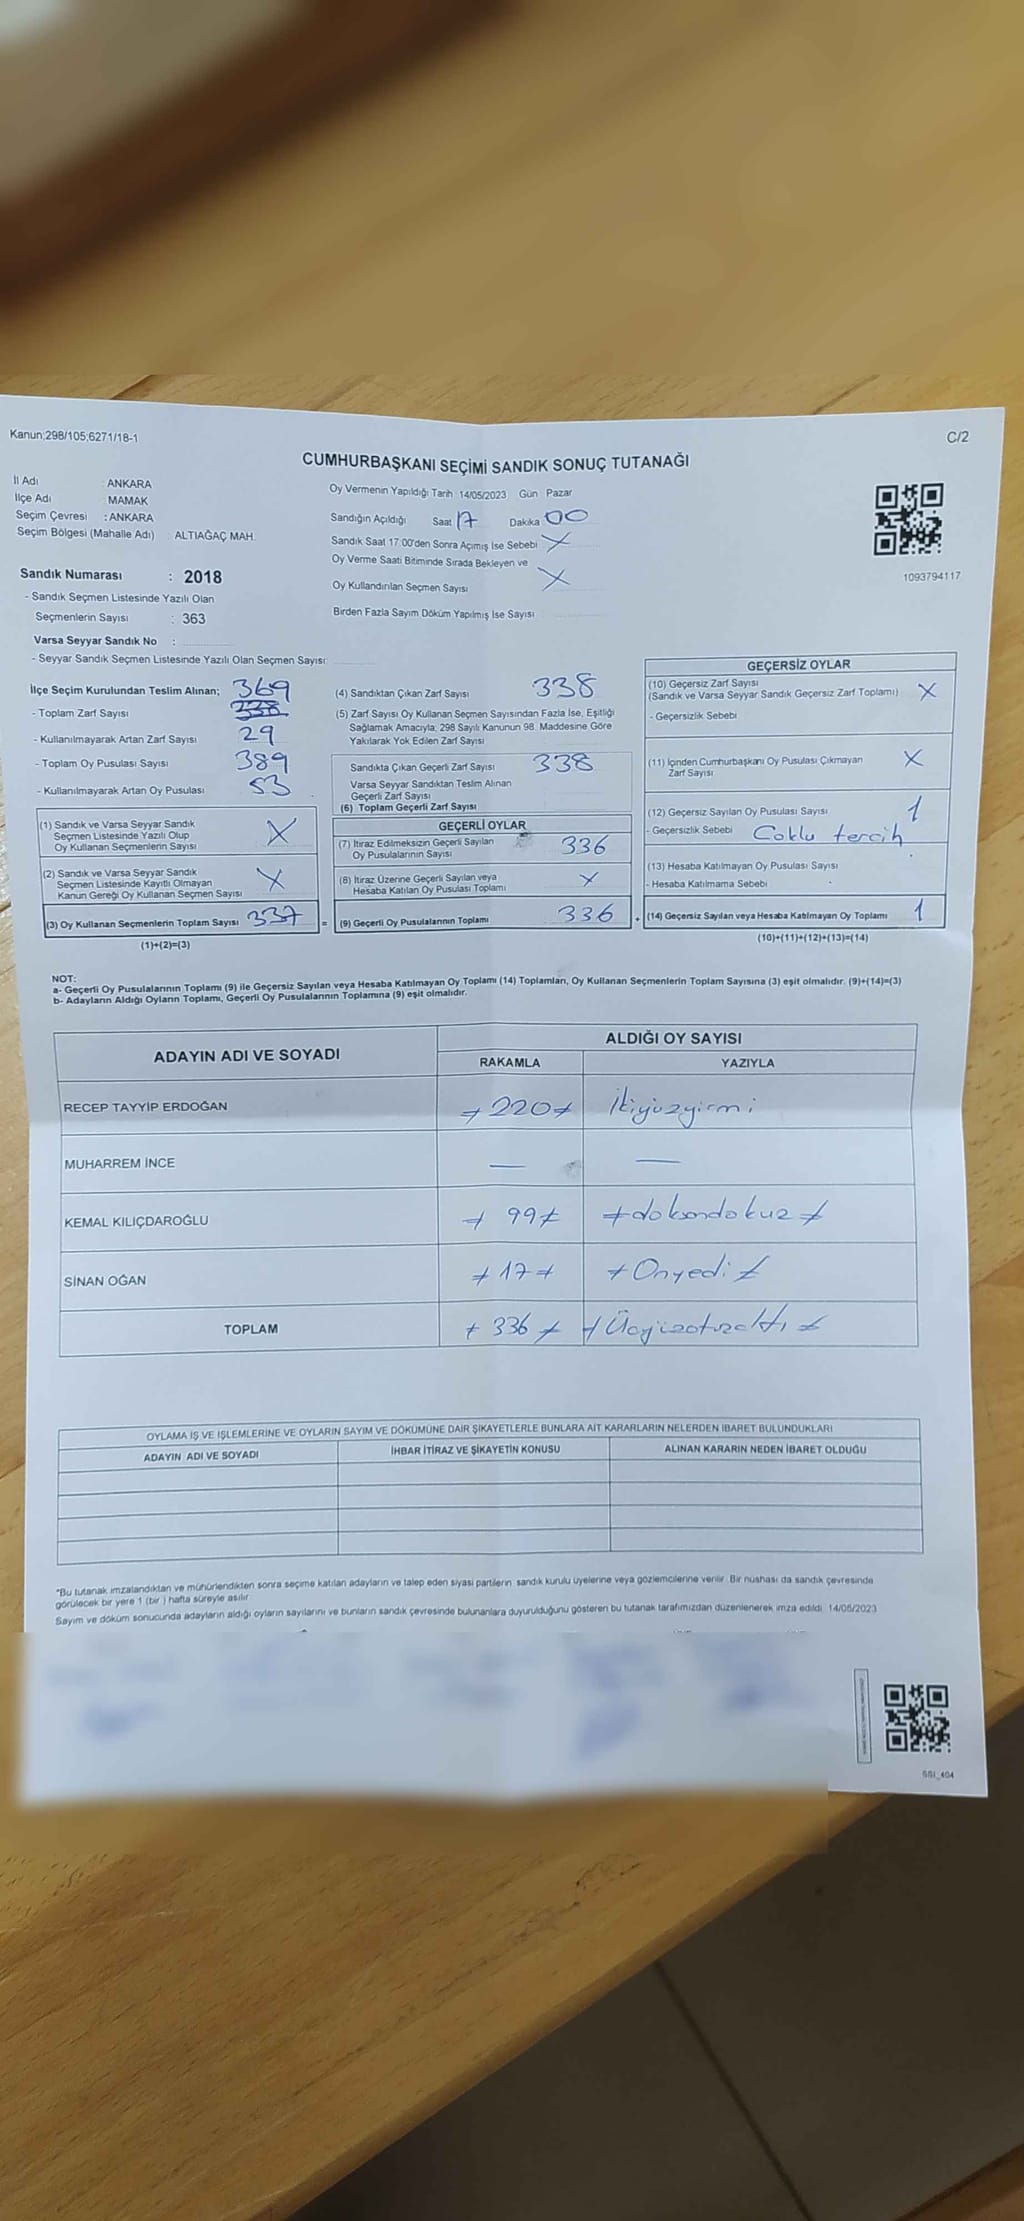 Kanun;298/105;6271/18-1
C/2
CUMHURBAŞKANI SEÇİMİ SANDIK SONUÇ TUTANAĞI
İl Adı : ANKARA
İlçe Adı : MAMAK
Seçim Çevresi : ANKARA
Seçim Bölgesi (Mahalle Adı) : ALTIAĞAÇ MAH.
Sandık Numarası : 2018
- Sandık Seçmen Listesinde Yazılı Olan
Seçmenlerin Sayısı : 363
Varsa Seyyar Sandık No :
- Seyyar Sandık Seçmen Listesinde Yazılı Olan Seçmen Sayısı:
Oy Vermenin Yapıldığı Tarih 14/05/2023 Gün Pazar
Sandığın Açıldığı Saat 17 Dakika 00
Sandık Saat 17.00'den Sonra Açımış İse Sebebi X
Oy Verme Saati Bitiminde Sırada Bekleyen ve
Oy Kullandırılan Seçmen Sayısı X
Birden Fazla Sayım Döküm Yapılmış İse Sayısı
1093794117
İlçe Seçim Kurulundan Teslim Alınan; 369
- Toplam Zarf Sayısı 338
- Kullanılmayarak Artan Zarf Sayısı 29
- Toplam Oy Pusulası Sayısı 389
- Kullanılmayarak Artan Oy Pusulası 53
(1) Sandık ve Varsa Seyyar Sandık
Seçmen Listesinde Yazılı Olup
Oy Kullanan Seçmenlerin Sayısı X
(2) Sandık ve Varsa Seyyar Sandık
Seçmen Listesinde Kayıtlı Olmayan
Kanun Gereği Oy Kullanan Seçmen Sayısı X
(3) Oy Kullanan Seçmenlerin Toplam Sayısı 337 =
(1)+(2)=(3)
(4) Sandıktan Çıkan Zarf Sayısı 338
(5) Zarf Sayısı Oy Kullanan Seçmen Sayısından Fazla İse, Eşitliği
Sağlamak Amacıyla, 298 Sayılı Kanunun 98. Maddesine Göre
Yakılarak Yok Edilen Zarf Sayısı
Sandıkta Çıkan Geçerli Zarf Sayısı 338
Varsa Seyyar Sandıktan Teslim Alınan
Geçerli Zarf Sayısı
(6) Toplam Geçerli Zarf Sayısı
GEÇERLİ OYLAR
(7) İtiraz Edilmeksizin Geçerli Sayılan
Oy Pusulalarının Sayısı 336
(8) İtiraz Üzerine Geçerli Sayılan veya
Hesaba Katılan Oy Pusulası Toplamı X
(9) Geçerli Oy Pusulalarının Toplamı 336 +
GEÇERSİZ OYLAR
(10) Geçersiz Zarf Sayısı
(Sandık ve Varsa Seyyar Sandık Geçersiz Zarf Toplamı) X
- Geçersizlik Sebebi
(11) İçinden Cumhurbaşkanı Oy Pusulası Çıkmayan
Zarf Sayısı X
(12) Geçersiz Sayılan Oy Pusulası Sayısı 1
- Geçersizlik Sebebi Çoklu tercih
(13) Hesaba Katılmayan Oy Pusulası Sayısı
- Hesaba Katılmama Sebebi
(14) Geçersiz Sayılan veya Hesaba Katılmayan Oy Toplamı 1
(10)+(11)+(12)+(13)=(14)
NOT:
a- Geçerli Oy Pusulalarının Toplamı (9) ile Geçersiz Sayılan veya Hesaba Katılmayan Oy Toplamı (14) Toplamları, Oy Kullanan Seçmenlerin Toplam Sayısına (3) eşit olmalıdır. (9)+(14)=(3)
b- Adayların Aldığı Oyların Toplamı, Geçerli Oy Pusulalarının Toplamına (9) eşit olmalıdır.
ADAYIN ADI VE SOYADI ALDIĞI OY SAYISI
RAKAMLA YAZIYLA
RECEP TAYYİP ERDOĞAN 220 İkiyüzyirmi
MUHARREM İNCE — —
KEMAL KILIÇDAROĞLU 99 doksandokuz
SİNAN OĞAN 17 Onyedi
TOPLAM 336 Üçyüzotuzaltı
OYLAMA İŞ VE İŞLEMLERİNE VE OYLARIN SAYIM VE DÖKÜMÜNE DAİR ŞİKAYETLERLE BUNLARA AİT KARARLARIN NELERDEN İBARET BULUNDUKLARI
ADAYIN ADI VE SOYADI İHBAR İTİRAZ VE ŞİKAYETİN KONUSU ALINAN KARARIN NEDEN İBARET OLDUĞU
*Bu tutanak imzalandıktan ve mühürlendikten sonra seçime katılan adayların ve talep eden siyasi partilerin sandık kurulu üyelerine veya gözlemcilerine verilir. Bir nüshası da sandık çevresinde
görülecek bir yere 1 (bir ) hafta süreyle asılır.
Sayım ve döküm sonucunda adayların aldığı oyların sayılarını ve bunların sandık çevresinde bulunanlara duyurulduğunu gösteren bu tutanak tarafımızdan düzenlenerek imza edildi. 14/05/2023
SSI_404